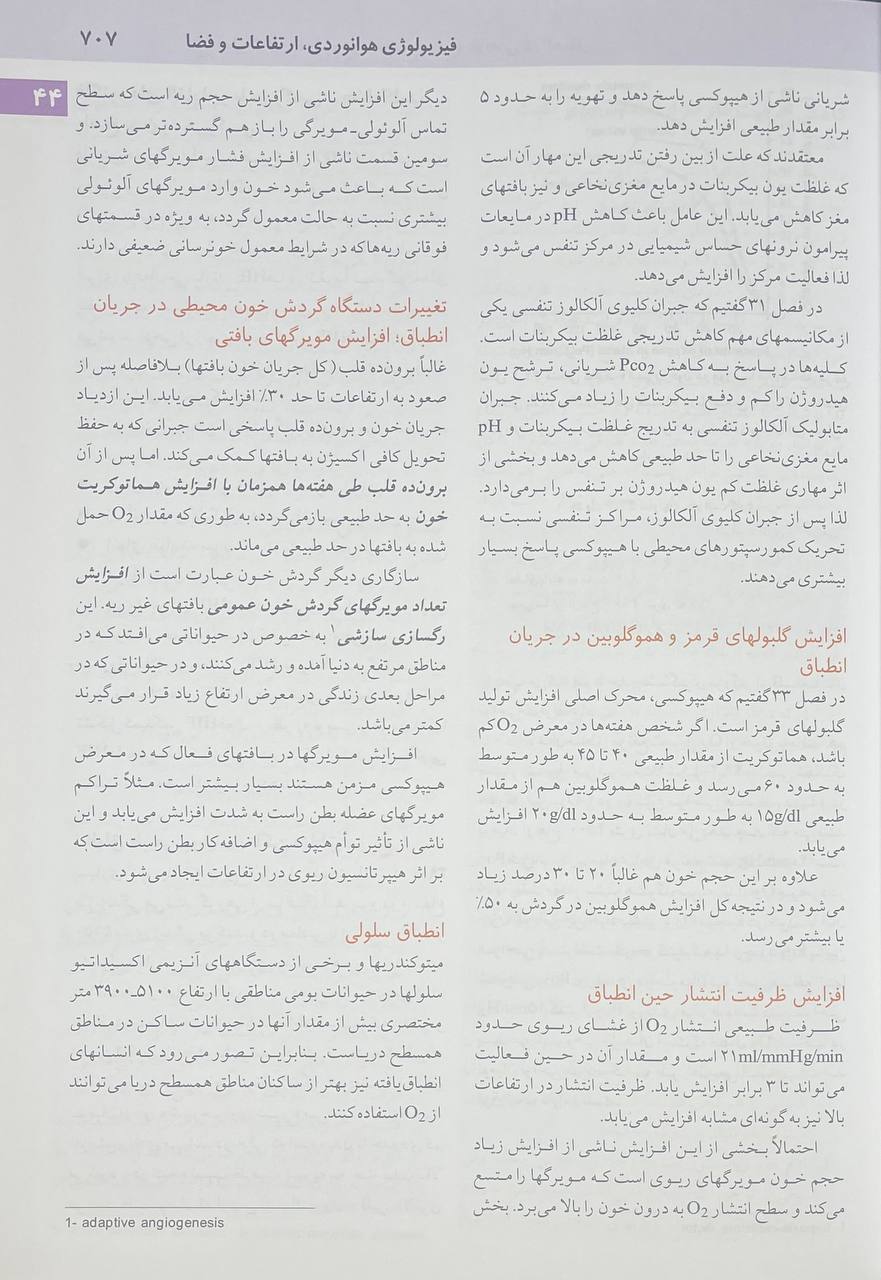 فیزیولوژی هوانوردی، ارتفاعات و فضا
۷۰۷
۴۴
شریانی ناشی از هیپوکسی پاسخ دهد و تهویه را به حدود ۵
برابر مقدار طبیعی افزایش دهد.
معتقدند که علت از بین رفتن تدریجی این مهار آن است
که غلظت یون بیکربنات در مایع مغزی‌نخاعی و نیز بافتهای
مغز کاهش می‌یابد. این عامل باعث کاهش pH در مایعات
پیرامون نرونهای حساس شیمیایی در مرکز تنفس می‌شود و
لذا فعالیت مرکز را افزایش می‌دهد.
در فصل ۳۱ گفتیم که جبران کلیوی آلکالوز تنفسی یکی
از مکانیسمهای مهم کاهش تدریجی غلظت بیکربنات است.
کلیه‌ها در پاسخ به کاهش Pco2 شریانی، ترشح یون
هیدروژن را کم و دفع بیکربنات را زیاد می‌کنند. جبران
متابولیک آلکالوز تنفسی به تدریج غلظت بیکربنات و pH
مایع مغزی‌نخاعی را تا حد طبیعی کاهش می‌دهد و بخشی از
اثر مهاری غلظت کم یون هیدروژن بر تنفس را برمی‌دارد.
لذا پس از جبران کلیوی آلکالوز، مراکز تنفسی نسبت به
تحریک کمورسپتورهای محیطی با هیپوکسی پاسخ بسیار
بیشتری می‌دهند.
افزایش گلبولهای قرمز و هموگلوبین در جریان
انطباق
در فصل ۳۳ گفتیم که هیپوکسی، محرک اصلی افزایش تولید
گلبولهای قرمز است. اگر شخص هفته‌ها در معرض O2 کم
باشد، هماتوکریت از مقدار طبیعی ۴۰ تا ۴۵ به طور متوسط
به حدود ۶۰ می‌رسد و غلظت هموگلوبین هم از مقدار
طبیعی ۱۵g/dl به طور متوسط به حدود ۲۰g/dl افزایش
می‌یابد.
علاوه بر این حجم خون هم غالباً ۲۰ تا ۳۰ درصد زیاد
می‌شود و در نتیجه کل افزایش هموگلوبین در گردش به ۵۰٪
یا بیشتر می‌رسد.
افزایش ظرفیت انتشار حین انطباق
ظرفیت طبیعی انتشار O2 از غشای ریوی حدود
۲۱ml/mmHg/min است و مقدار آن در حین فعالیت
می‌تواند تا ۳ برابر افزایش یابد. ظرفیت انتشار در ارتفاعات
بالا نیز به گونه‌ای مشابه افزایش می‌یابد.
احتمالاً بخشی از این افزایش ناشی از افزایش زیاد
حجم خون مویرگهای ریوی است که مویرگها را متسع
می‌کند و سطح انتشار O2 به درون خون را بالا می‌برد. بخش
دیگر این افزایش ناشی از افزایش حجم ریه است که سطح
تماس آلوئولی-مویرگی را باز هم گسترده‌تر می‌سازد. و
سومین قسمت ناشی از افزایش فشار مویرگهای شریانی
است که باعث می‌شود خون وارد مویرگهای آلوئولی
بیشتری نسبت به حالت معمول گردد، به ویژه در قسمتهای
فوقانی ریه‌ها که در شرایط معمول خونرسانی ضعیفی دارند.
تغییرات دستگاه گردش خون محیطی در جریان
انطباق؛ افزایش مویرگهای بافتی
غالباً برون‌ده قلب (کل جریان خون بافتها) بلافاصله پس از
صعود به ارتفاعات تا حد ۳۰٪ افزایش می‌یابد. این ازدیاد
جریان خون و برون‌ده قلب پاسخی است جبرانی که به حفظ
تحویل کافی اکسیژن به بافتها کمک می‌کند. اما پس از آن
برون‌ده قلب طی هفته‌ها همزمان با افزایش هماتوکریت
خون به حد طبیعی بازمی‌گردد، به طوری که مقدار O2 حمل
شده به بافتها در حد طبیعی می‌ماند.
سازگاری دیگر گردش خون عبارت است از افزایش
تعداد مویرگهای گردش خون عمومی بافتهای غیر ریه. این
رگسازی سازشی۱ به خصوص در حیواناتی می‌افتد که در
مناطق مرتفع به دنیا آمده و رشد می‌کنند، و در حیواناتی که در
مراحل بعدی زندگی در معرض ارتفاع زیاد قرار می‌گیرند
کمتر می‌باشد.
افزایش مویرگها در بافتهای فعال که در معرض
هیپوکسی مزمن هستند بسیار بیشتر است. مثلاً تراکم
مویرگهای عضله بطن راست به شدت افزایش می‌یابد و این
ناشی از تأثیر توأم هیپوکسی و اضافه کار بطن راست است که
بر اثر هیپرتانسیون ریوی در ارتفاعات ایجاد می‌شود.
انطباق سلولی
میتوکندریها و برخی از دستگاههای آنزیمی اکسیداتیو
سلولها در حیوانات بومی مناطقی با ارتفاع ۵۱۰۰-۳۹۰۰ متر
مختصری بیش از مقدار آنها در حیوانات ساکن در مناطق
همسطح دریاست. بنابراین تصور می‌رود که انسانهای
انطباق‌یافته نیز بهتر از ساکنان مناطق همسطح دریا می‌توانند
از O2 استفاده کنند.
1- adaptive angiogenesis